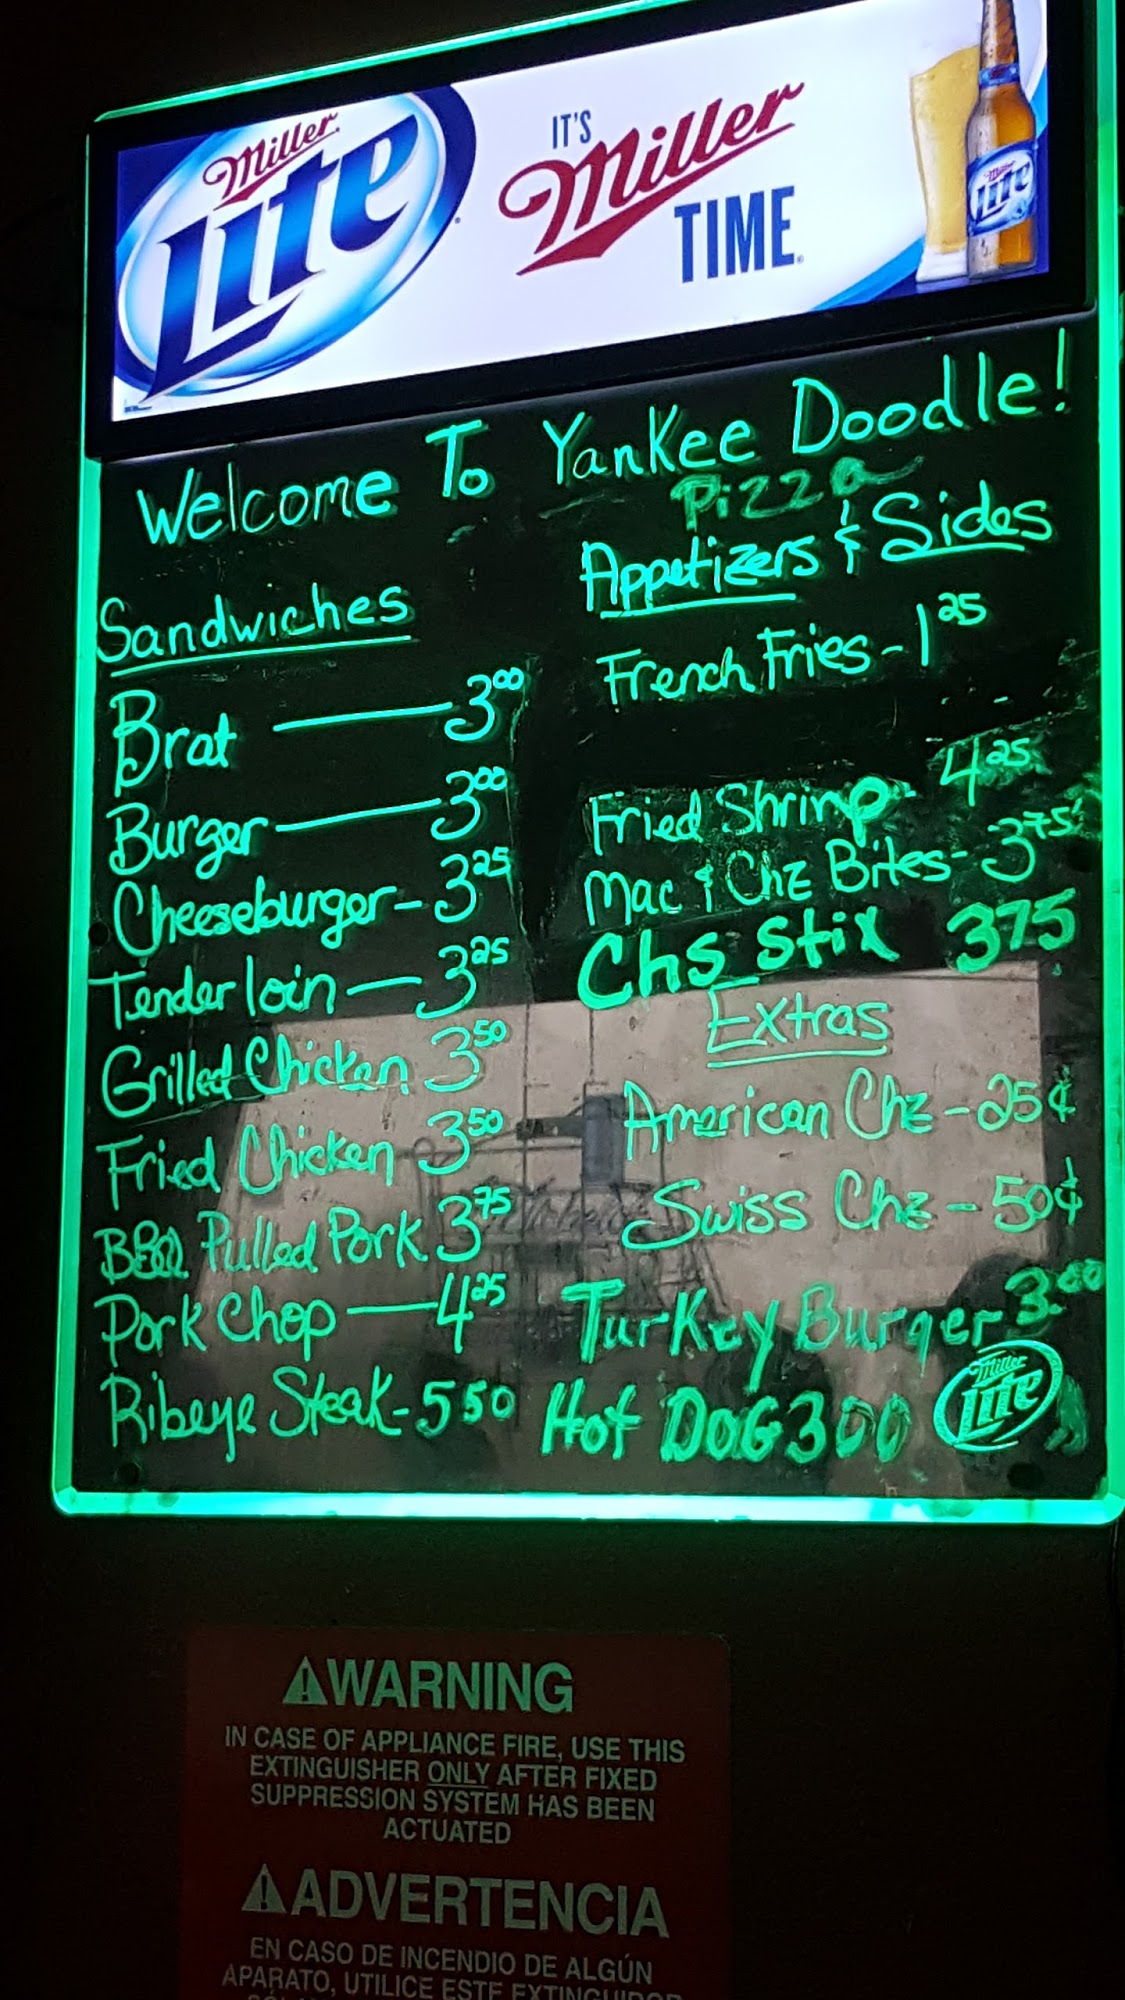 Miller
Lite
IT'S
Miller
TIME
Miller
Lite
Welcome To Yankee Doodle!
Pizza
Sandwiches
Brat — 3.00
Burger — 3.00
Cheeseburger - 3.25
Tenderloin — 3.25
Grilled Chicken 3.50
Fried Chicken 3.50
BBQ Pulled Pork 3.75
Pork Chop — 4.25
Ribeye Steak - 5.50
Appetizers & Sides
French Fries - 1.25
Fried Shrimp - 4.25
Mac & Chz Bites - 3.75
Chs Stix 375
Extras
American Chz - 25¢
Swiss Chz - 50¢
Turkey Burger 3.00
Hot DOG 300
Miller
Lite
WARNING
IN CASE OF APPLIANCE FIRE, USE THIS
EXTINGUISHER ONLY AFTER FIXED
SUPPRESSION SYSTEM HAS BEEN
ACTUATED
ADVERTENCIA
EN CASO DE INCENDIO DE ALGÚN
APARATO, UTILICE ESTE EXTINGUIDOR